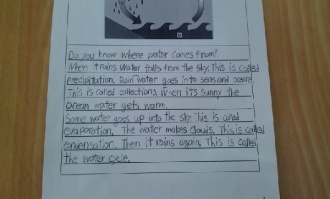 Do you know where water comes from?
When it rains water falls from the sky. This is called
precipitation. Rain water goes into seas and oceans
This is called collections. When it's sunny the
ocean water gets warm.
Some water goes up into the sky. This is called
evaporation. The water makes clouds. This is called
condensation. Then it rains again. This is called
the water cycle.